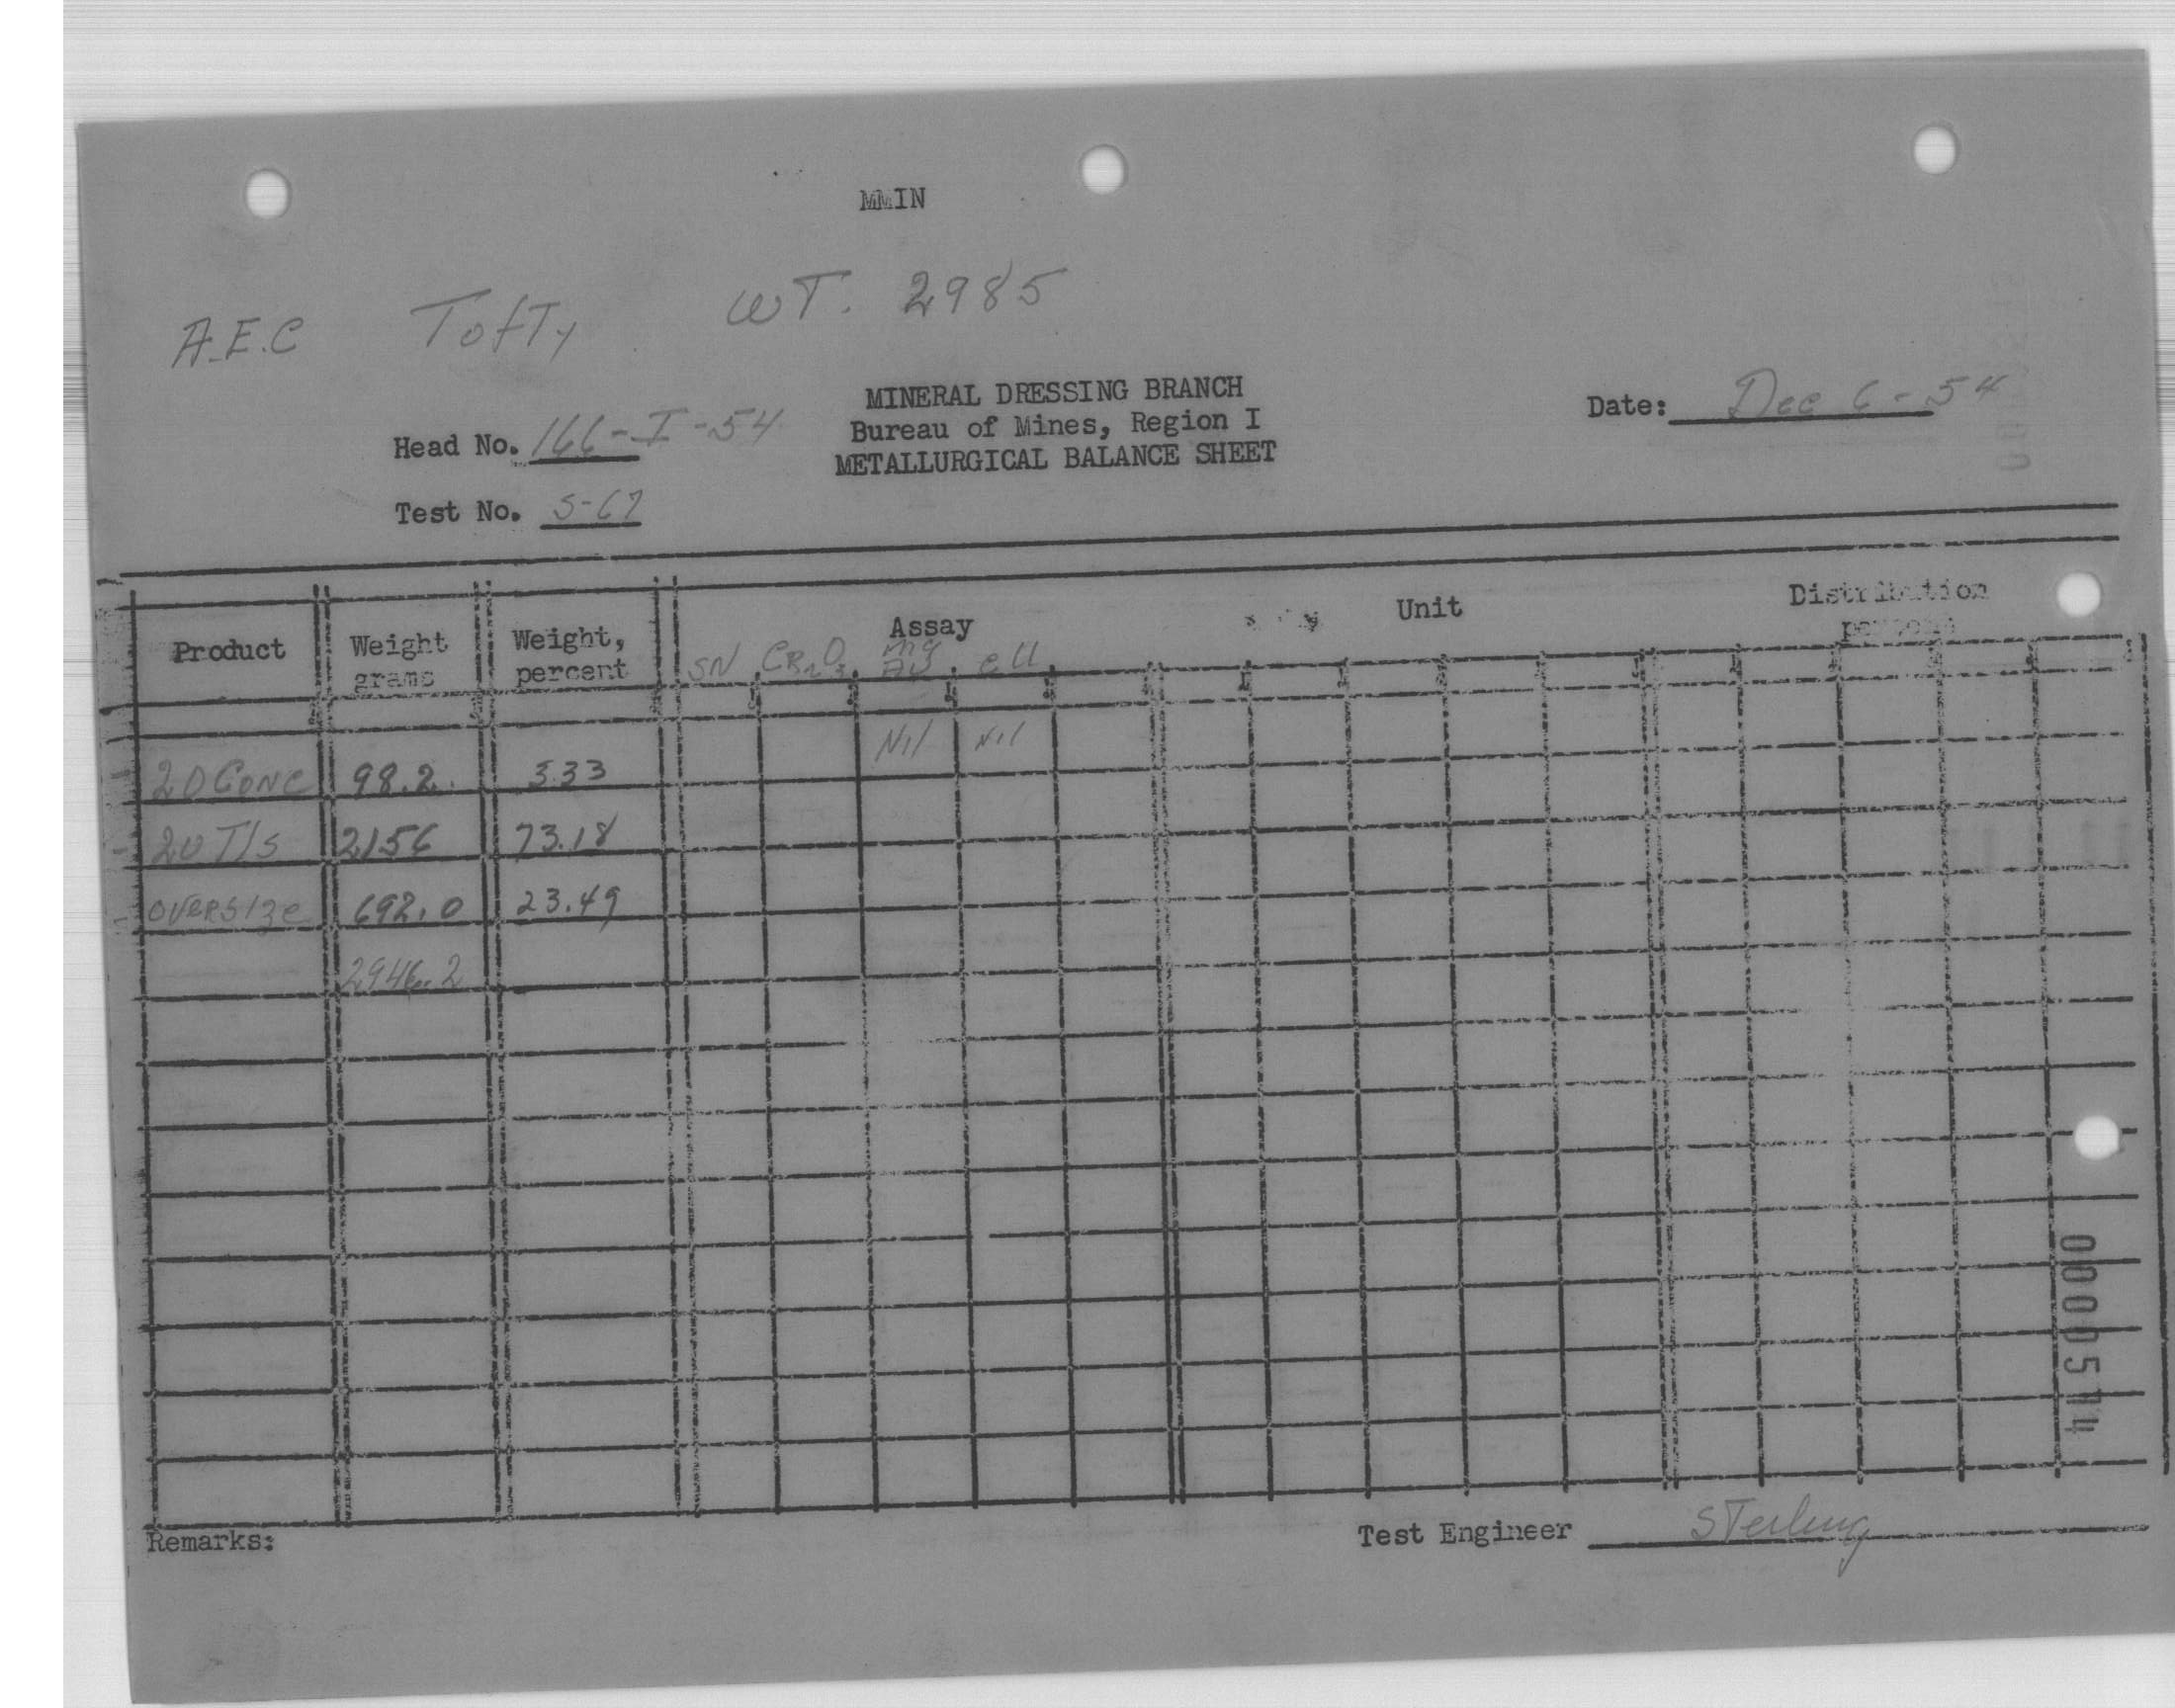 MMIN
A.E.C Tofty WT. 2985
MINERAL DRESSING BRANCH
Bureau of Mines, Region I
METALLURGICAL BALANCE SHEET
Date: Dec 6-54
Head No. 166-I-54
Test No. S-67
Product Weight grams Weight, percent Assay Unit Distribution percent
SN CR2O3 mg Au eU
Nil Nil
20 Conc 98.2 3.33
20 T/s 2156 73.18
Oversize 692.0 23.49
2946.2
Remarks:
Test Engineer Sterling
0000514